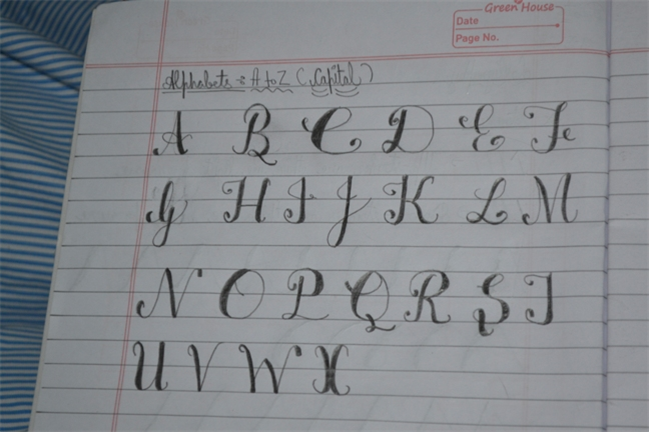 Green House
Date
Page No.
Alphabets :- A to Z (Capital)
A B C D E F
G H I J K L M
N O P Q R S T
U V W X